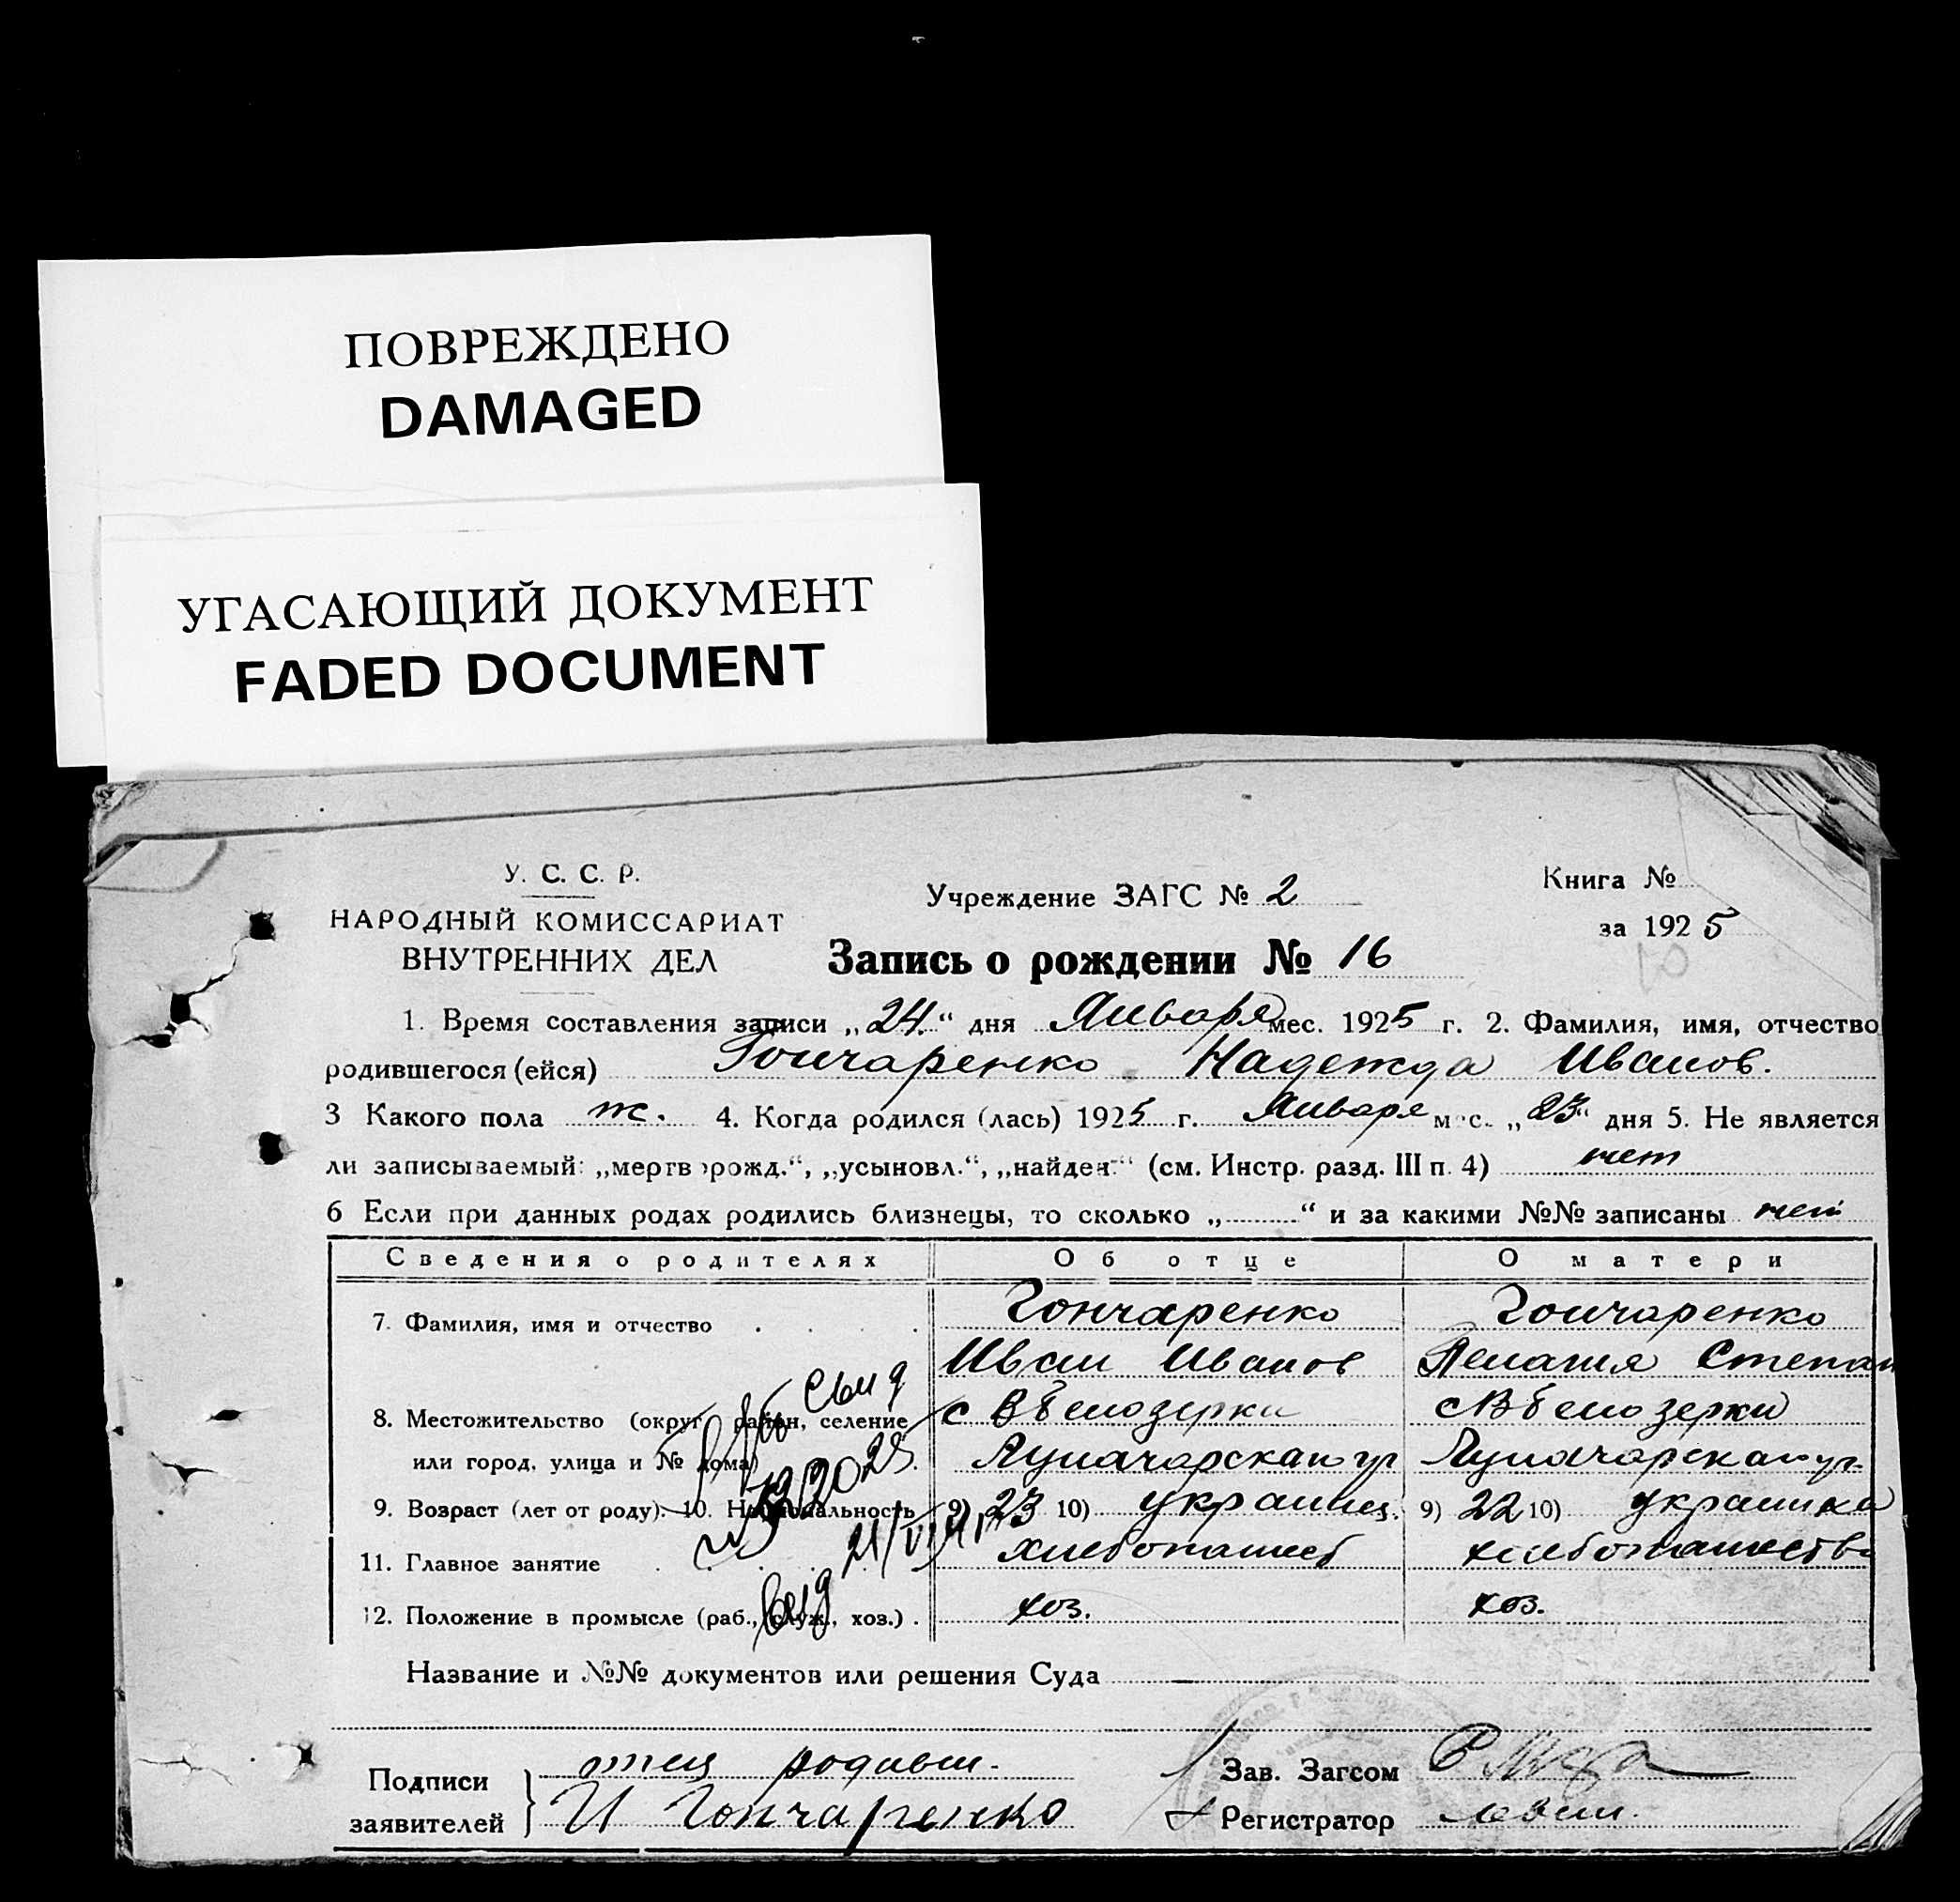 ПОВРЕЖДЕНО
DAMAGED
УГАСАЮЩИЙ ДОКУМЕНТ
FADED DOCUMENT
У. С. С. Р.
НАРОДНЫЙ КОМИССАРИАТ
ВНУТРЕННИХ ДЕЛ
Учреждение ЗАГС № 2
Книга №
за 1925
10
Запись о рождении № 16
1. Время составления записи „24.“ дня Января мес. 1925 г. 2. Фамилия, имя, отчество
родившегося (ейся) Гончаренко Надежда Иванов.
3 Какого пола ж. 4. Когда родился (лась) 1925 г. Января мес. „23“ дня 5. Не является
ли записываемый: „мертворожд.“, „усыновл.“, „найден.“ (см. Инстр. разд. III п. 4) нет
6 Если при данных родах родились близнецы, то сколько „..........“ и за какими №№ записаны нет
Сведения о родителях Об отце О матери
7. Фамилия, имя и отчество Гончаренко Гончаренко
Иван Иванов Пелагия Степан
8. Местожительство (округ, район, селение с В Белозерки с В Белозерки
или город, улица и № дома) Луначарская ул Луначарская ул.
9. Возраст (лет от роду). 10. Национальность 9) 23 10) украинец. 9) 22 10) украинка
11. Главное занятие хлебопашеств хлебопашество
12. Положение в промысле (раб., служ., хоз.) хоз. хоз.
Название и №№ документов или решения Суда
Подписи заявителей отец родивш.
И Гончаренко
Зав. Загсом
Регистратор